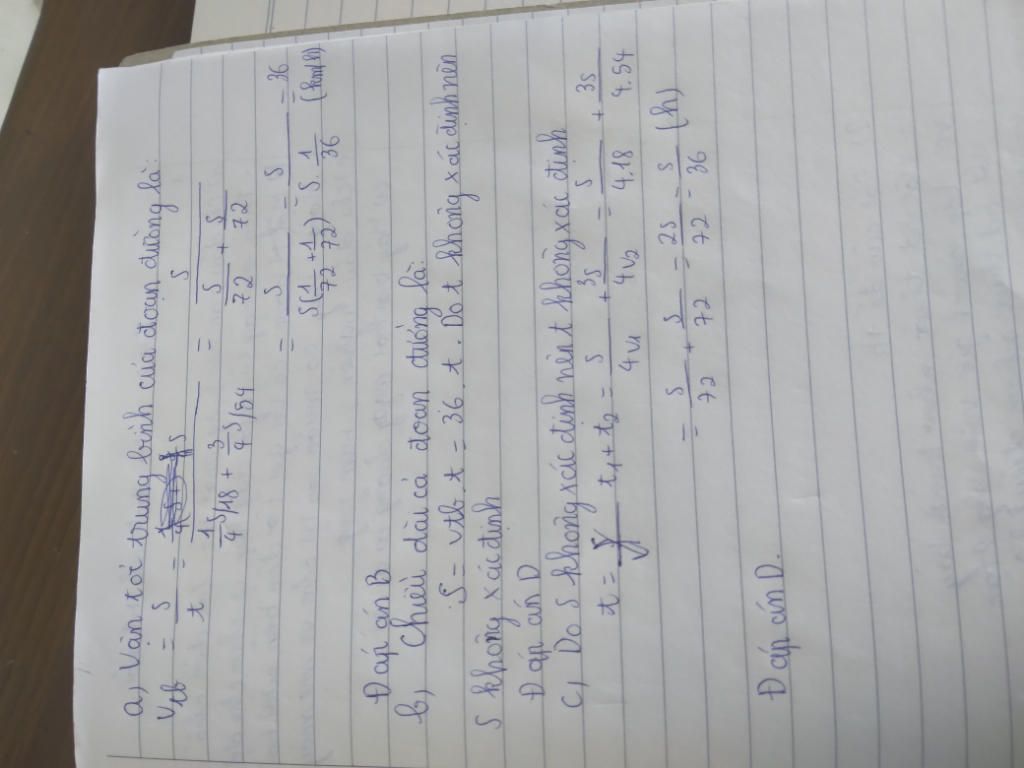 a, Vận tốc trung bình của đoạn đường là:
v_tb = s/t = s/(1/4 s/18 + 3/4 s/54) = s/(s/72 + s/72)
= s/(s(1/72 + 1/72)) = s/(s. 1/36) = 36 (km/h)
Đáp án B
b, Chiều dài cả đoạn đường là:
S = vtb.t = 36.t. Do t không xác định nên
S không xác định
Đáp án D
C, Do S không xác định nên t không xác định
t = t1 + t2 = s/4v1 + 3s/4v2 = s/4.18 + 3s/4.54
= s/72 + s/72 = 2s/72 = s/36 (h)
Đáp án D.